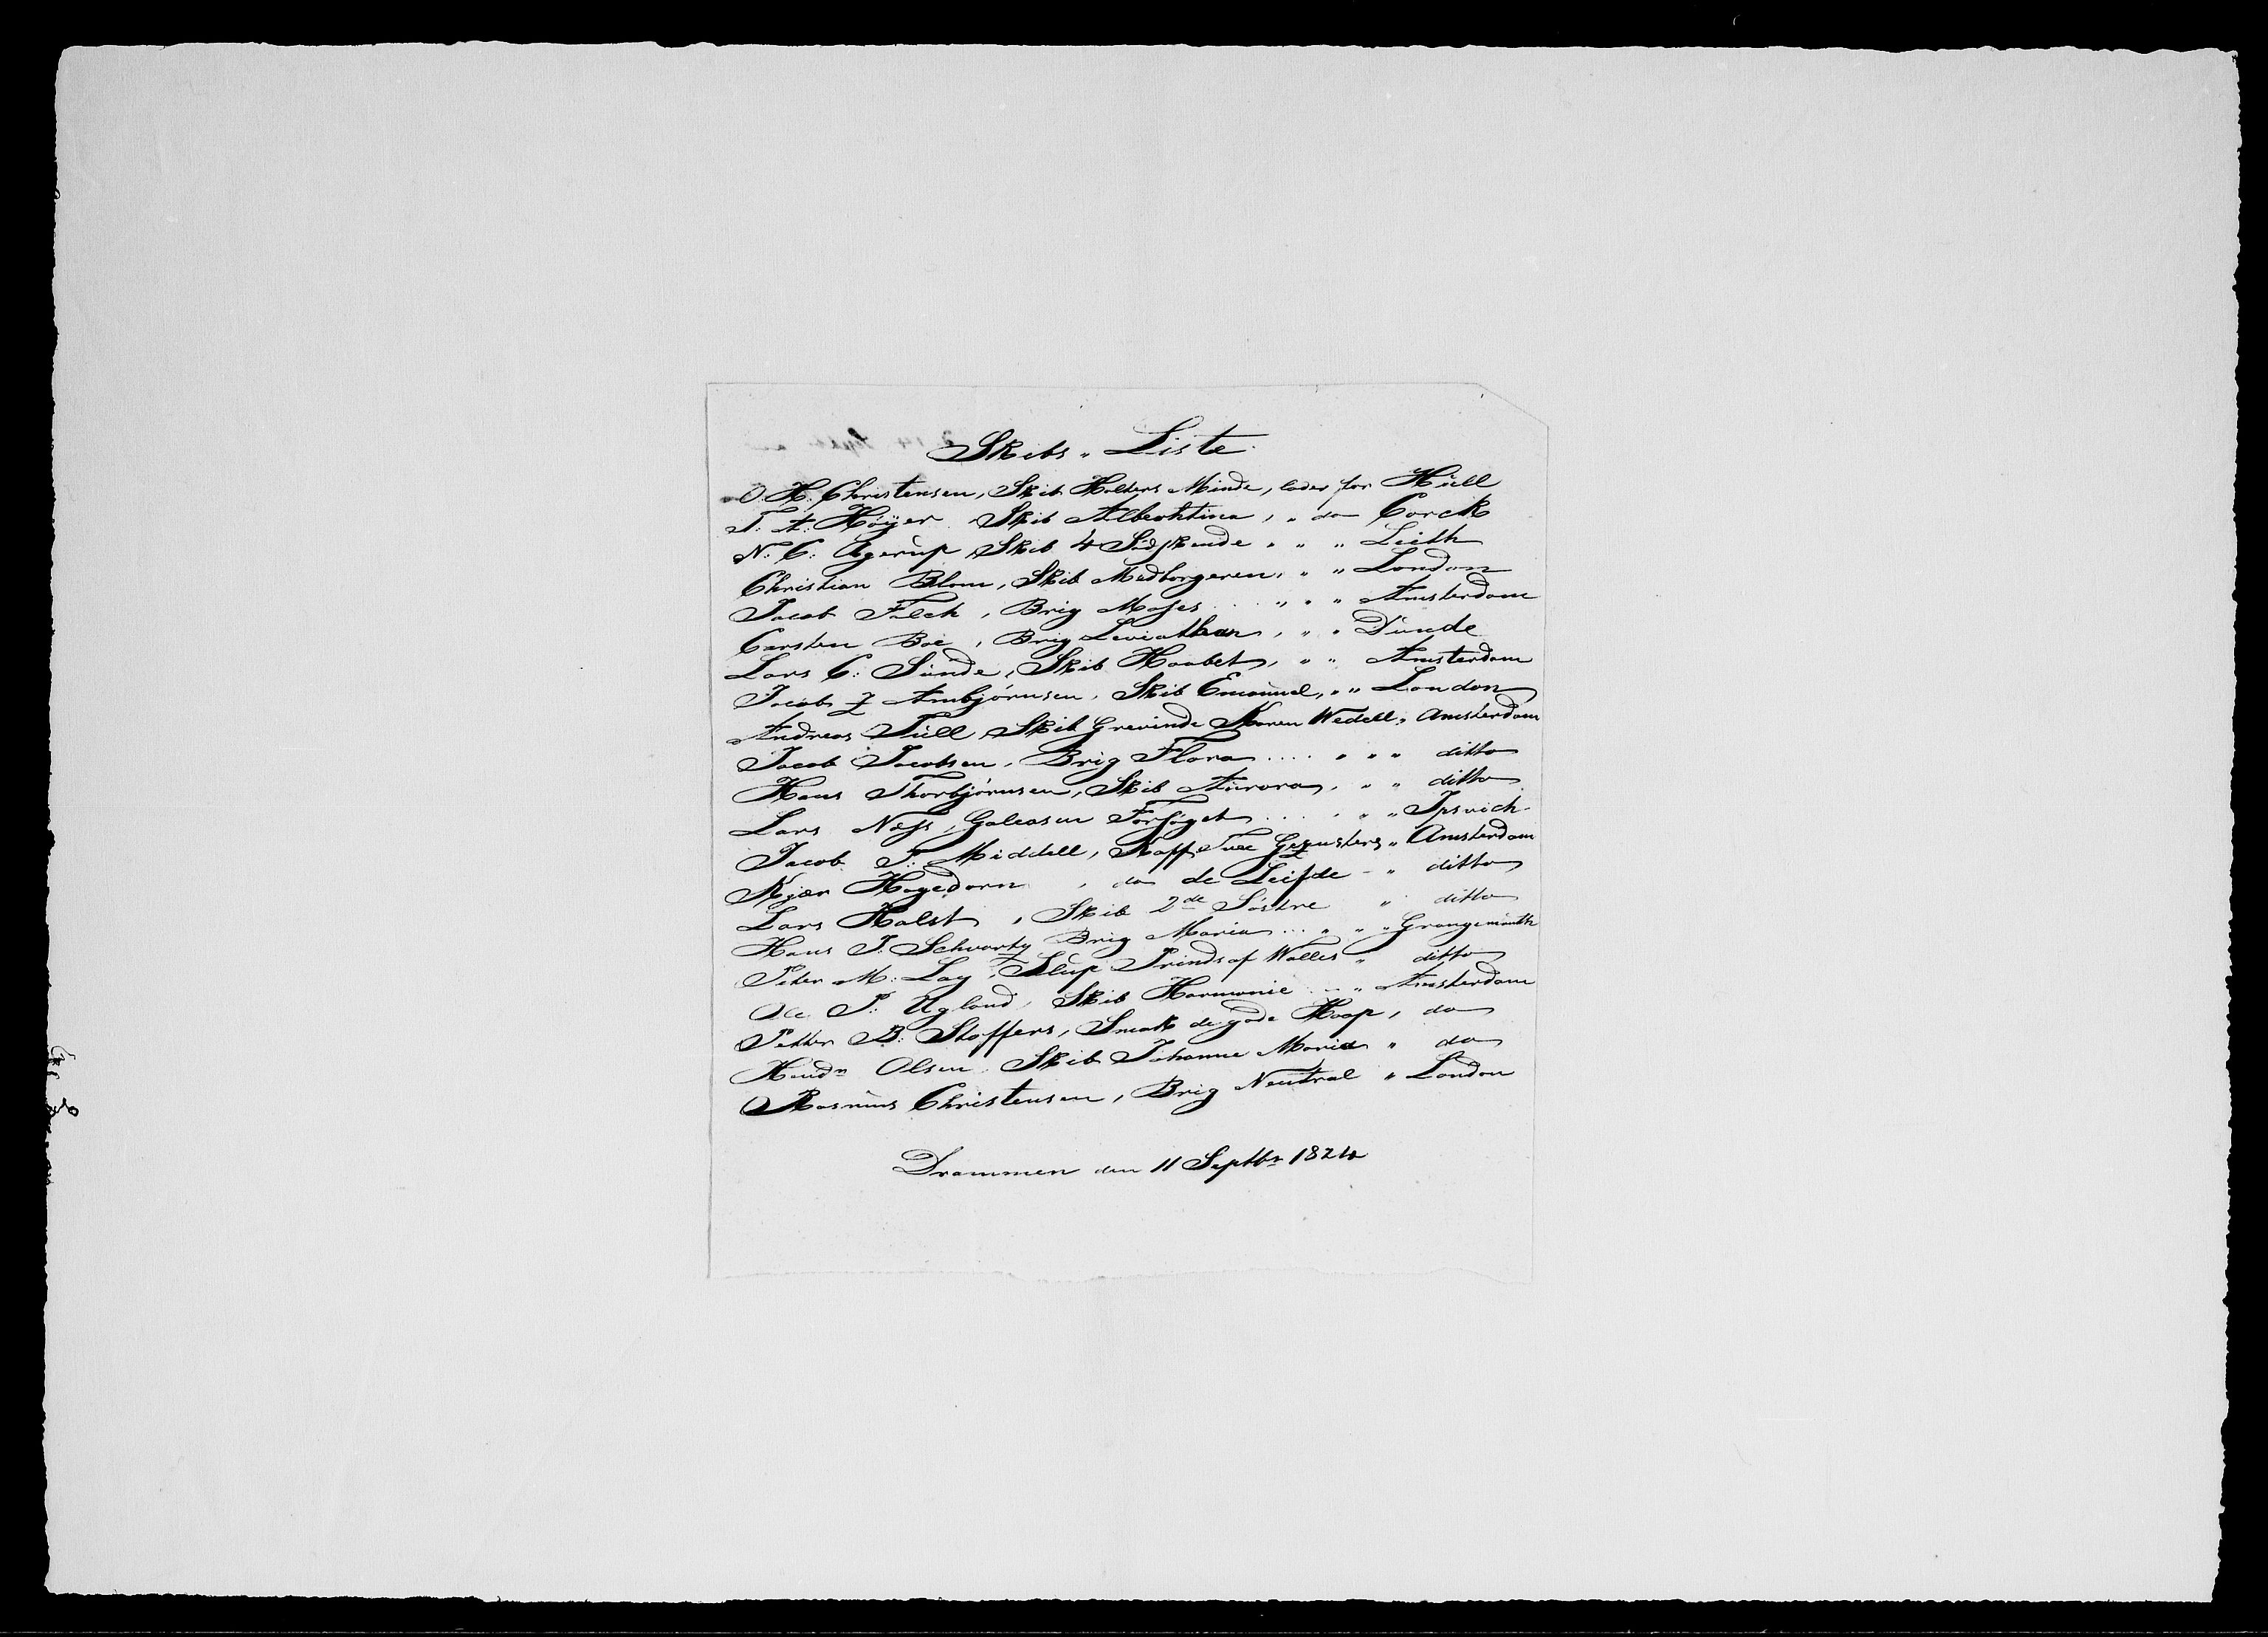 Skibs " Liste
O. H. Christensen, Skib Holders Minde, lader for Hüll
T. A. Höyer Skib Alberhtina, " do Corck
N. C. Agerüp, Skib 4 Södskende " " " Leith
Christian Blom, Skib Medborgeren, " " London
Jacob Falck, Brig Moses ... " " " Amsterdam
Carsten Boe, Brig Leviathan, " " Dünde
Lars C. Sünde, Skib Haabet, " " Amsterdam
Jacob Z Ambjörnsen, Skib Emanüel, " " London
Andreas Tüll, Skib Grevinde Karen Wedell, Amsterdam
Jacob Jacobsen, Brig Flora .... " " " ditto
Hans Thorbjörnsen, Skib Aürora, " " ditto
Lars Næss, Galeasen Forsöget ... " " " Ipsvich
Jacob T. Middell, Kaff Twee Gezusters " Amsterdam
Kjær Hagedorn, do de Leifde - " ditto
Lars Holst, Skib 2de Söstre " ditto
Hans J. Schvartz Brig Maria ... " " " Grangemoüth
Peter M. Lay, Slup Prinds af Walles " ditto
Ole P. Ugland, Skib Harmonie ... " Amsterdam
Petter B. Stoffers, Smak de gode Hoop, do
Hendn Olsen, Skib Johanne Maria " do
Rasmus Christensen, Brig Neutral " London
Drammen den 11 Septbr 1824